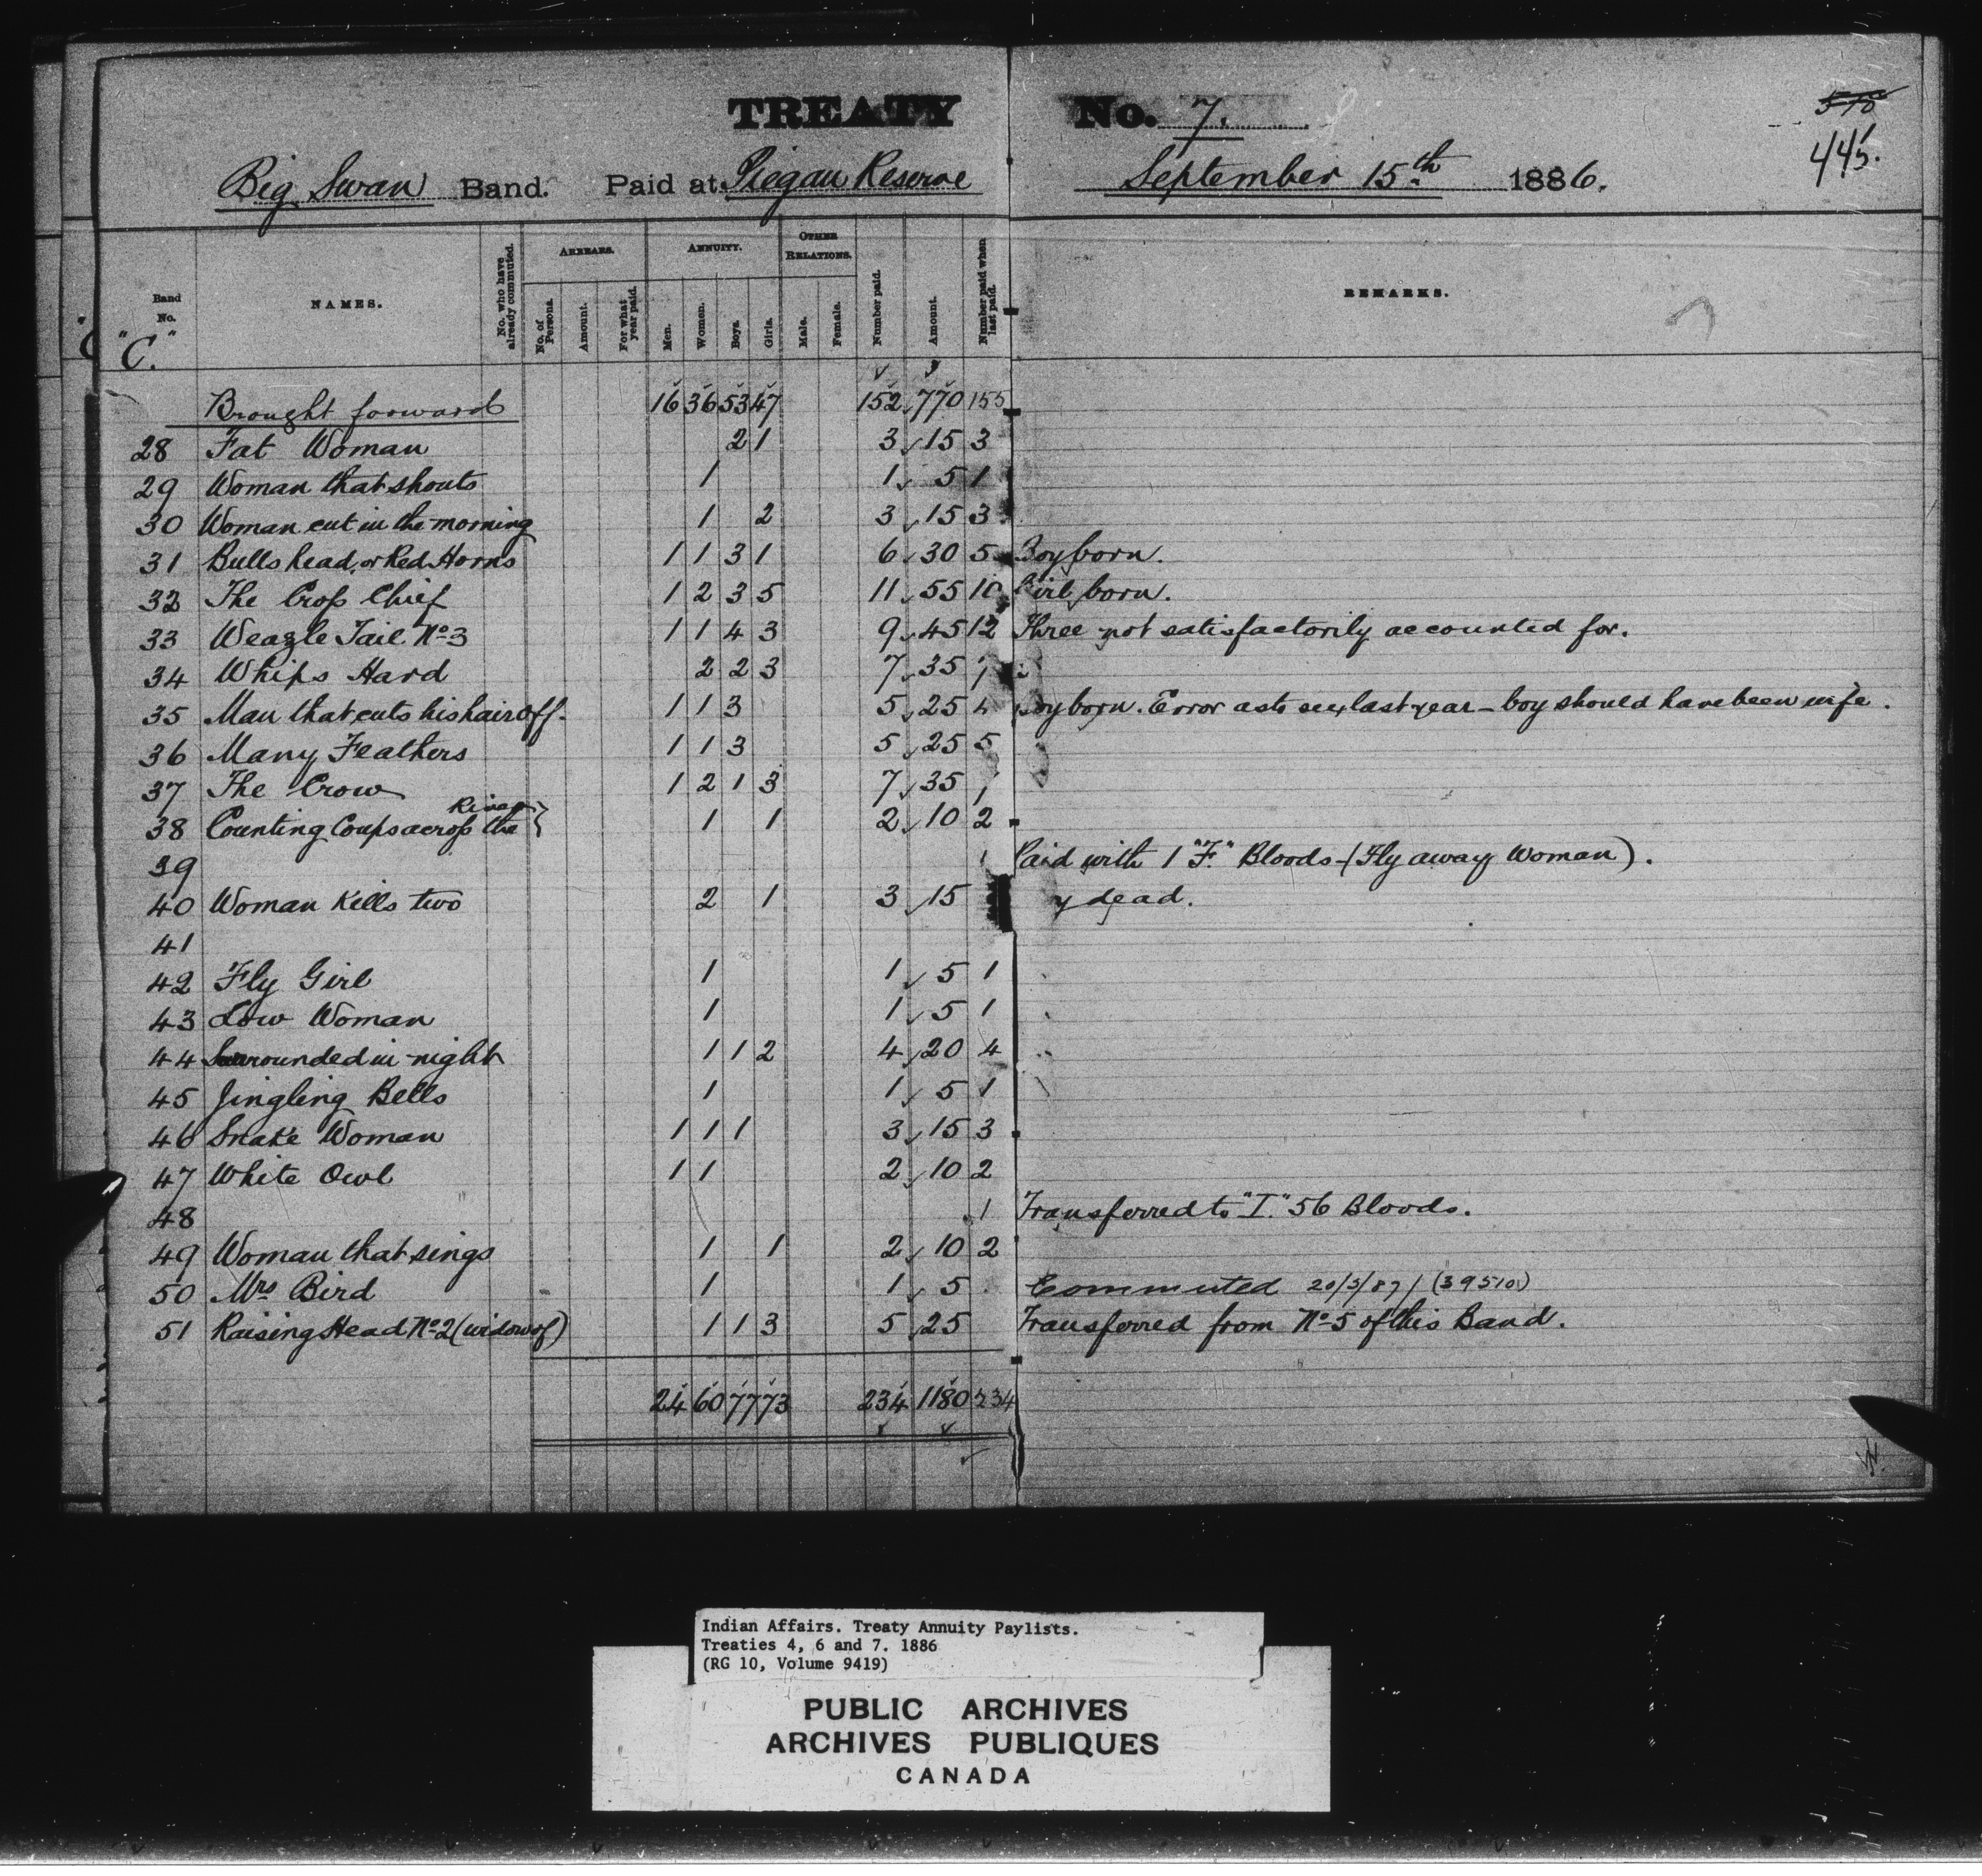 TREATY No. 7.
570
445.
Big Swan Band. Paid at Piegan Reserve September 15th 1886.
Band No. NAMES. No. who have already commuted. ARREARS. No. of Persons. Amount. For what year paid. ANNUITY. Men. Women. Boys. Girls. OTHER RELATIONS. Male. Female. Number paid. Amount. Number paid when last paid. REMARKS.
"C."
Brought forward 16 36 53 47 152 770 155
28 Fat Woman 2 1 3 15 3
29 Woman that shouts 1 1 5 1
30 Woman cut in the morning 1 2 3 15 3
31 Bulls head, or Red Horns 1 1 3 1 6 30 5 Boy born.
32 The Crop Chief 1 2 3 5 11 55 10 Girl born.
33 Weazle Tail No 3 1 1 4 3 9 45 12 Three not satisfactorily accounted for.
34 Whips Hard 2 2 3 7 35 7
35 Man that cuts his hair off. 1 1 3 5 25 4 Boy born. Error as to sex last year – boy should have been wife.
36 Many Feathers 1 1 3 5 25 5
37 The Crow 1 2 1 3 7 35
38 Counting Coups across the River } 1 1 2 10 2
39 1 Paid with 1 "F." Bloods – (Fly away Woman).
40 Woman Kills two 2 1 3 15 dead.
41
42 Fly Girl 1 1 5 1
43 Low Woman 1 1 5 1
44 Surrounded in night 1 1 2 4 20 4
45 Jingling Bells 1 1 5 1
46 Snake Woman 1 1 1 3 15 3
47 White Owl 1 1 2 10 2
48 1 Transferred to "I." 56 Bloods.
49 Woman that sings 1 1 2 10 2
50 Mrs Bird 1 1 5 Commuted 20/5/87 / (39510)
51 Raising Head No 2 (widow of) 1 1 3 5 25 Transferred from No 5 of this Band.
24 60 77 73 234 1180 234
Indian Affairs. Treaty Annuity Paylists.
Treaties 4, 6 and 7. 1886
(RG 10, Volume 9419)
PUBLIC ARCHIVES
ARCHIVES PUBLIQUES
CANADA